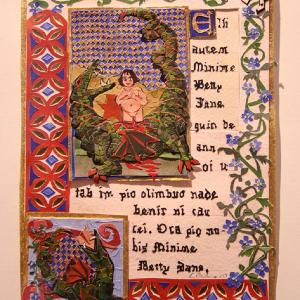 Elii
autem
Minime
Betty
Jane
quin de
ann
oi u
tab im pio olimbuo nade
benir ni cau
cei. Ora pio no
bis Minime
Betty Jane.